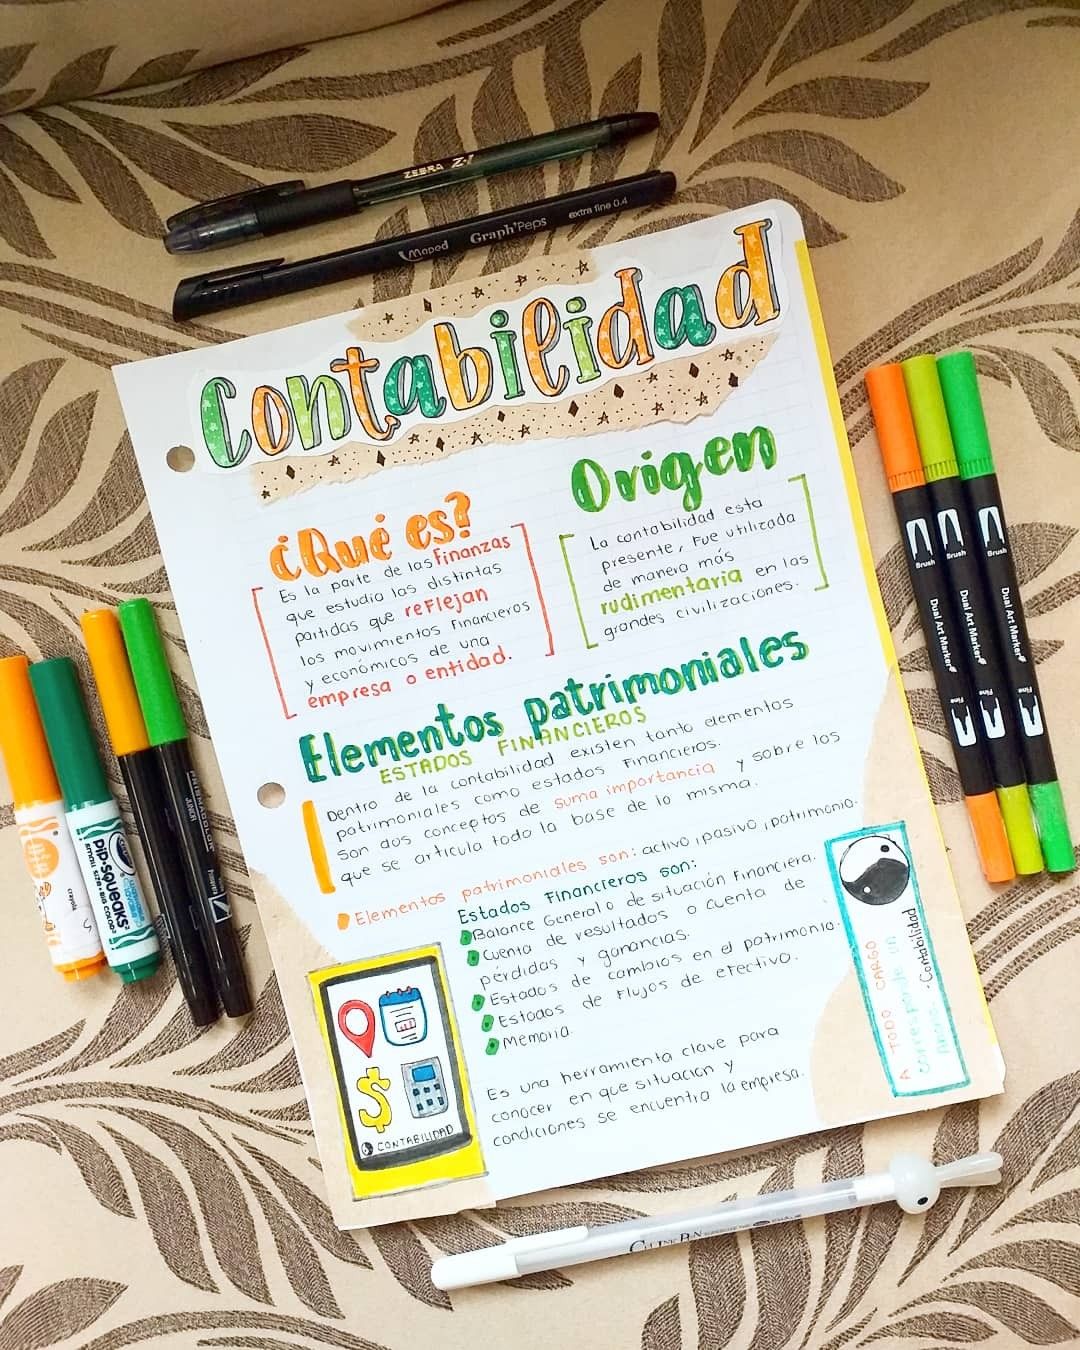 ZEBRA Z-1
Maped Graph'Peps extra fine 0.4
Contabilidad
¿Qué es?
Es la parte de las finanzas
que estudia las distintas
partidas que reflejan
los movimientos financieros
y económicos de una
empresa o entidad.
Origen
La contabilidad esta
presente, fue utilizada
de manera más
rudimentaria en las
grandes civilizaciones.
Elementos patrimoniales
ESTADOS FINANCIEROS
Dentro de la contabilidad existen tanto elementos
patrimoniales como estados financieros.
son dos conceptos de suma importancia y sobre los
que se articula toda la base de la misma.
Elementos patrimoniales son: activo, pasivo, patrimonio.
Estados financieros son:
Balance General o de situación financiera.
Cuenta de resultados o cuenta de
pérdidas y ganancias.
Estados de cambios en el patrimonio.
Estados de flujos de efectivo.
Memoria.
Es una herramienta clave para
conocer en que situacion y
condiciones se encuentra la empresa.
CONTABILIDAD
A TODO CARGO
corresponde un
Abono.
·Contabilidad
Brush Dual Art Marker Fine
Brush Dual Art Marker Fine
Brush Dual Art Marker Fine
crayola
PiP-SQUEAKS
SMALL SIZE·BIG COLOR
PRISMACOLOR
JUNIOR